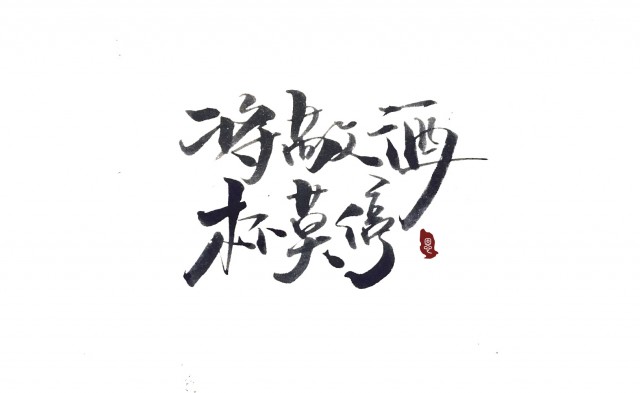 将敬酒
杯莫停